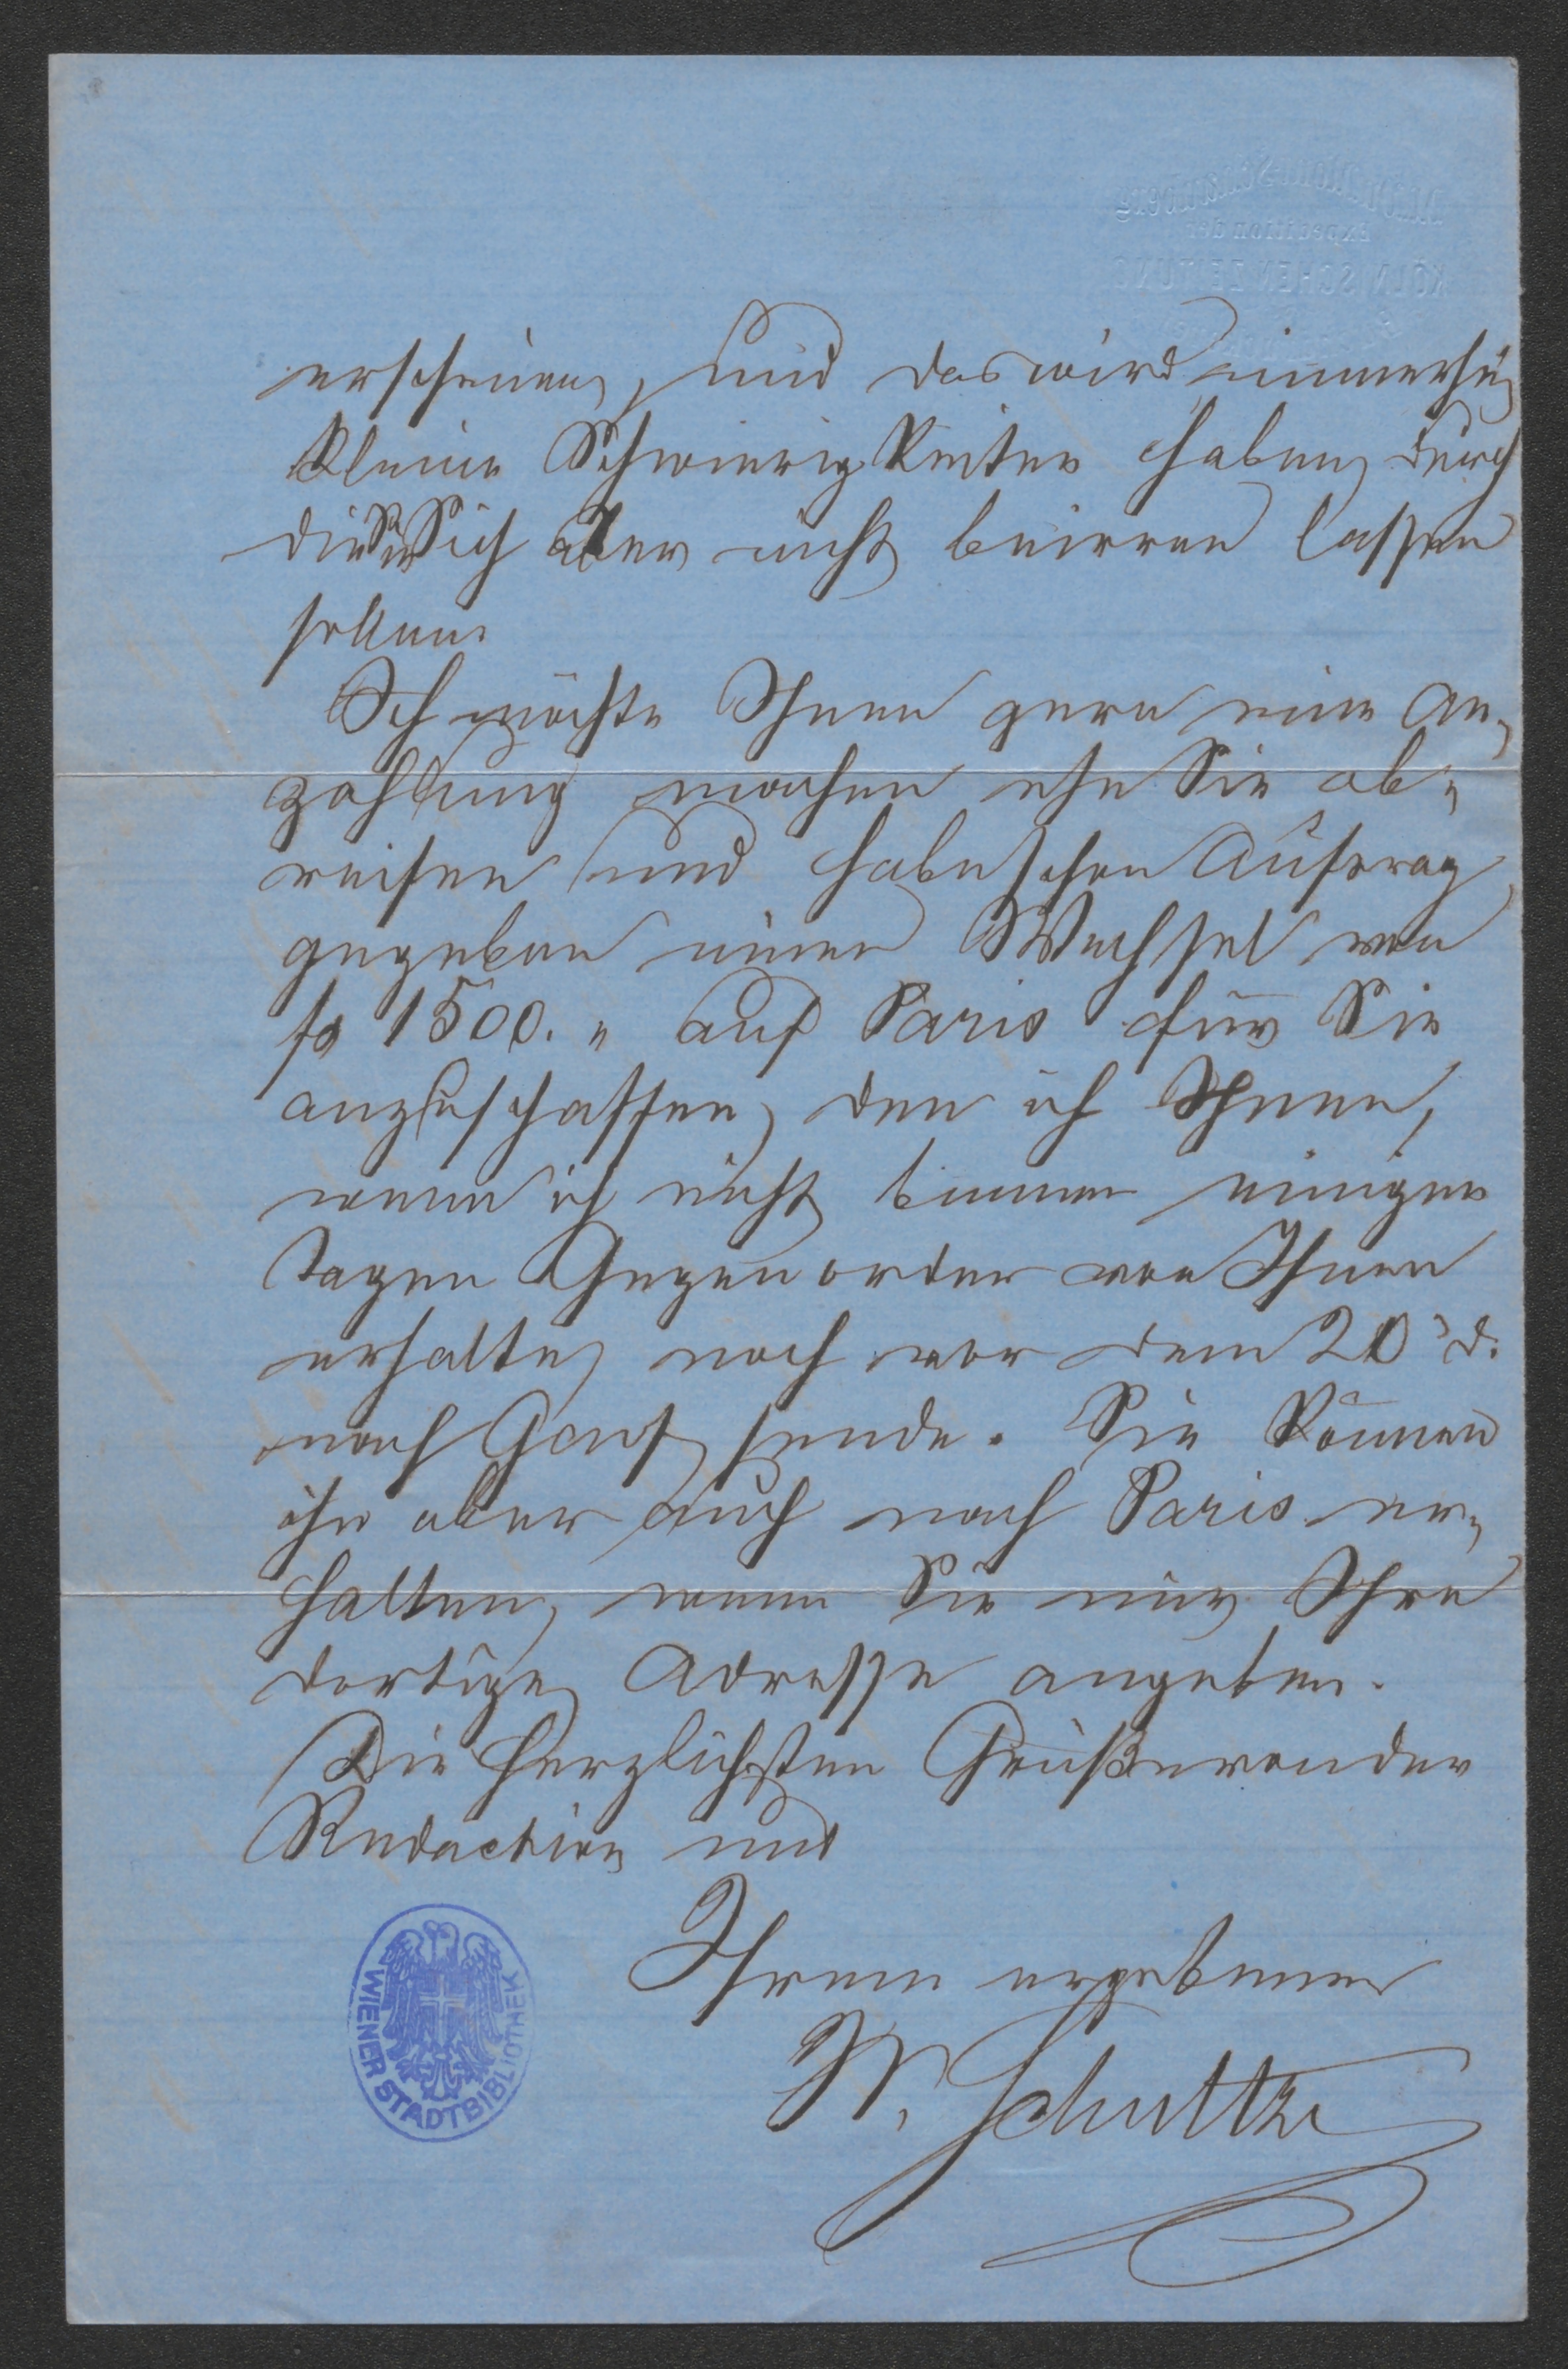 M. DuMont-Schauberg
Expedition der
KÖLNISCHEN ZEITUNG
erscheinen, und das wird immerhin
kleine Schwierigkeiten haben, durch
die Sie Sich aber nicht beirren lassen
sollten.
Ich möchte Ihnen gern eine An-
zahlung machen ehe Sie ab-
reisen und habe schon Auftrag
gegeben einen Wechsel von
fs 1500. " auf Paris für Sie
anzuschaffen, den ich Ihnen,
wenn ich nicht binnen einigen
Tagen Gegenorder von Ihnen
erhalte, noch vor dem 20 d.
nach Genf sende. Sie können
ihn aber auch nach Paris er-
halten, wenn Sie mir Ihre
dortige Adresse angeben.
Die herzlichsten Grüße von der
Redaction und
Ihrem ergebenen
W. Schultze
WIENER STADTBIBLIOTHEK